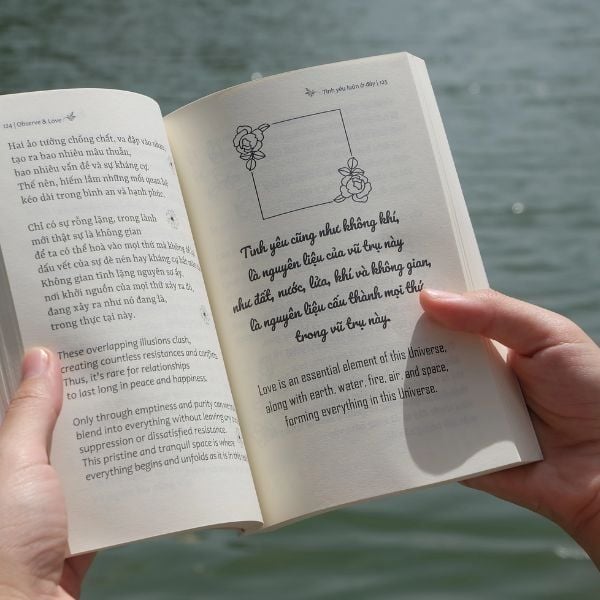 124 | Observe & Love
Hai ảo tưởng chồng chất, va đập vào nhau,
tạo ra bao nhiêu mâu thuẫn,
bao nhiêu vấn đề và sự kháng cự.
Thế nên, hiếm lắm những mối quan hệ
kéo dài trong bình an và hạnh phúc.
Chỉ có sự rỗng lặng, trong lành
mới thật sự là không gian
để ta có thể hoà vào mọi thứ mà không để lại
dấu vết của sự đè nén hay kháng cự bất
Không gian tĩnh lặng nguyên sơ ấy,
nơi khởi nguồn của mọi thứ xảy ra đó,
đang xảy ra như nó đang là,
trong thực tại này.
These overlapping illusions clash,
creating countless resistances and conflicts.
Thus, it's rare for relationships
to last long in peace and happiness.
Only through emptiness and purity can we
blend into everything without leaving any
suppression or dissatisfied resistance.
This pristine and tranquil space is where
everything begins and unfolds as it is in this
Tình yêu luôn ở đây | 125
Tình yêu cũng như không khí,
là nguyên liệu của vũ trụ này
như đất, nước, lửa, khí và không gian,
là nguyên liệu cấu thành mọi thứ
trong vũ trụ này.
Love is an essential element of this Universe,
along with earth, water, fire, air, and space,
forming everything in this Universe.